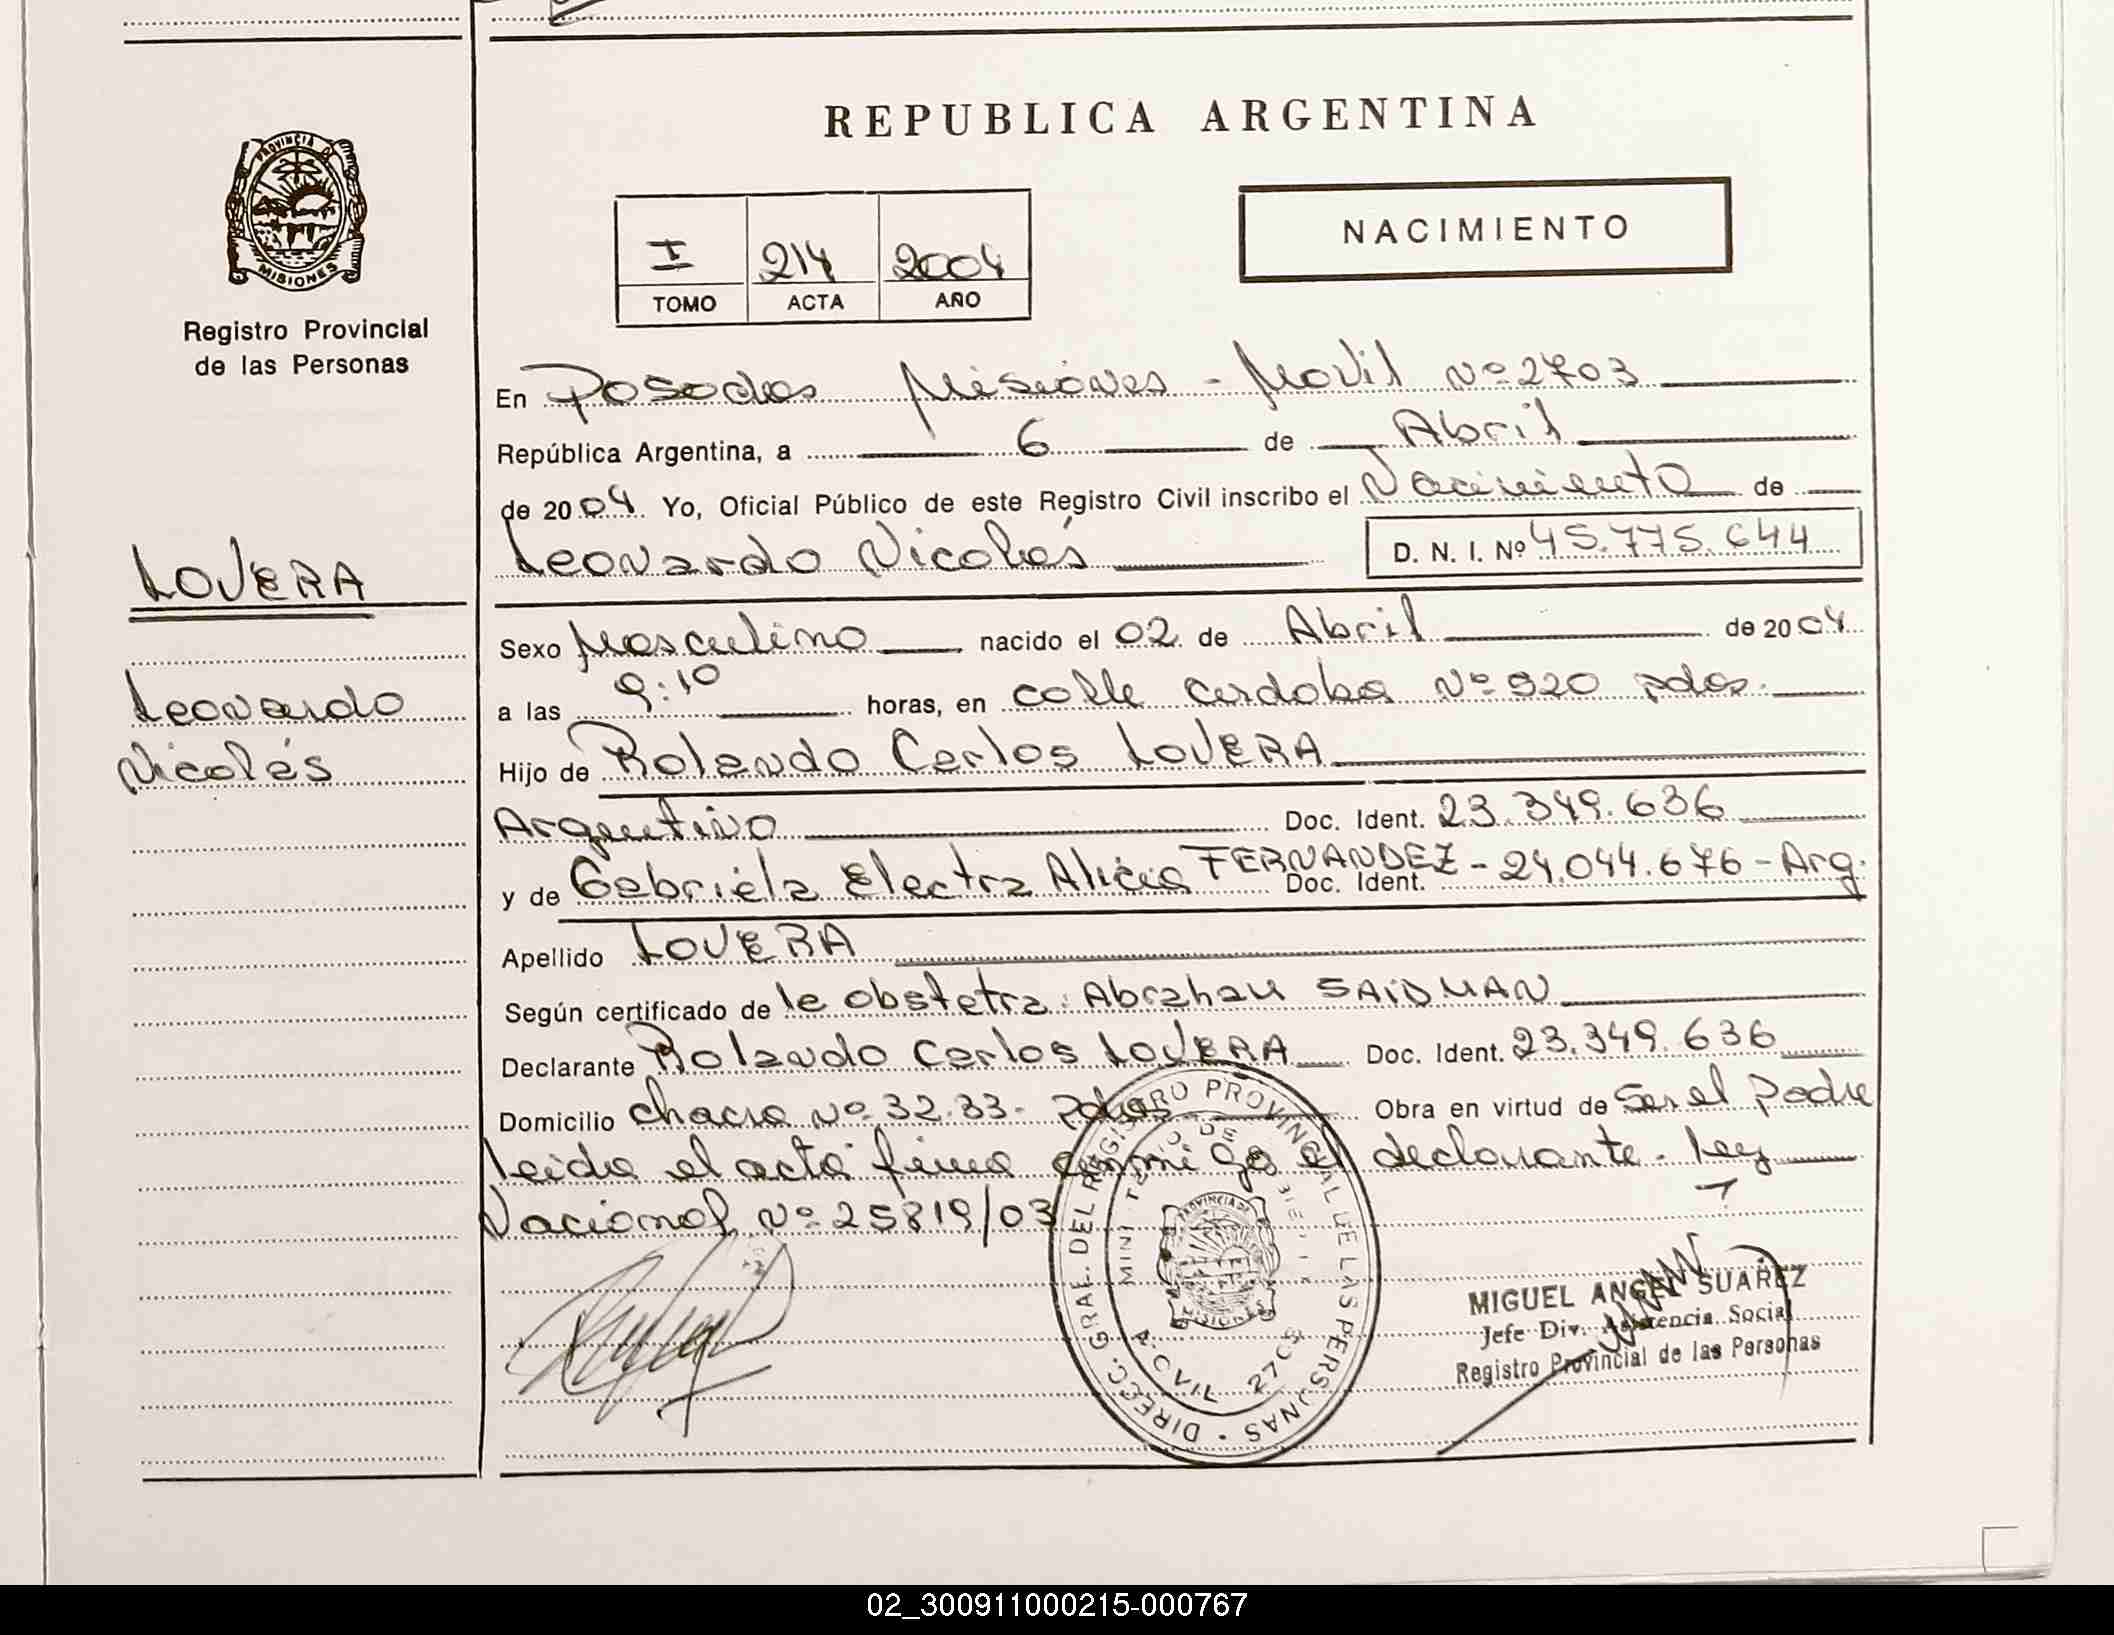 REPUBLICA ARGENTINA
PROVINCIA DE
MISIONES
Registro Provincial
de las Personas
NACIMIENTO
I 214 2004
TOMO ACTA AÑO
En Posadas Misiones - Movil Nº 2703
República Argentina, a 6 de Abril
de 2004. Yo, Oficial Público de este Registro Civil inscribo el Nacimiento de
Leonardo Nicolás
D. N. I. Nº 45.775.644
LOVERA
Leonardo
Nicolás
Sexo Masculino nacido el 02 de Abril de 2004
a las 9:10 horas, en calle cordoba Nº 920 pdas.
Hijo de Rolando Carlos LOVERA
Argentino Doc. Ident. 23.349.636
y de Gabriela Electra Alicia FERNANDEZ - Doc. Ident. 24.044.676 - Arg.
Apellido LOVERA
Según certificado de le obstetra: Abraham SAIDMAN
Declarante Rolando Carlos LOVERA Doc. Ident. 23.349.636
Domicilio chacra Nº 32.33- Pdas Obra en virtud de Ser el Padre
Leida el acta firma conmigo el declarante. Ley
Nacional Nº 25819/03
DIREC. GRAL. DEL REGISTRO PROVINCIAL DE LAS PERSONAS
PROVINCIA DE
MISIONES
MOVIL 2703
MIGUEL ANGEL SUAREZ
Jefe Div. Asistencia Social
Registro Provincial de las Personas
02_300911000215-000767